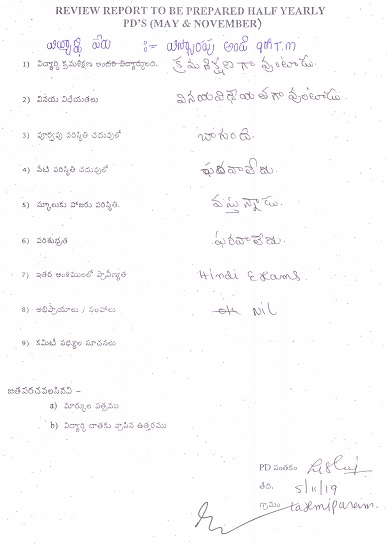 REVIEW REPORT TO BE PREPARED HALF YEARLY
PD'S (MAY & NOVEMBER)
విద్యార్థి పేరు :-
1) విద్యార్థి క్రమశిక్షణ అందరి విద్యార్థులలో. క్రమశిక్షణ గా వుంటాడు.
2) వినయ విధేయతలు వినయవిధేయతగా వుంటాడు.
3) పూర్వపు పరిస్థితి చదువులో బాగుంది.
4) నేటి పరిస్థితి చదువులో పరవాలేదు.
5) స్కూలుకు హాజరు పరిస్థితి. వస్తున్నాడు.
6) పరిశుభ్రత పరవాలేదు.
7) ఇతర అంశములలో ప్రావీణ్యత Hindi Exams.
8) అభిప్రాయాలు / సలహాలు Nil
9) కమిటీ సభ్యుల సూచనలు
జతపరచవలసినవి –
a) మార్కుల పత్రము
b) విద్యార్థి దాతకు వ్రాసిన ఉత్తరము
PD సంతకం
తేది. 5/11/19
గ్రామం